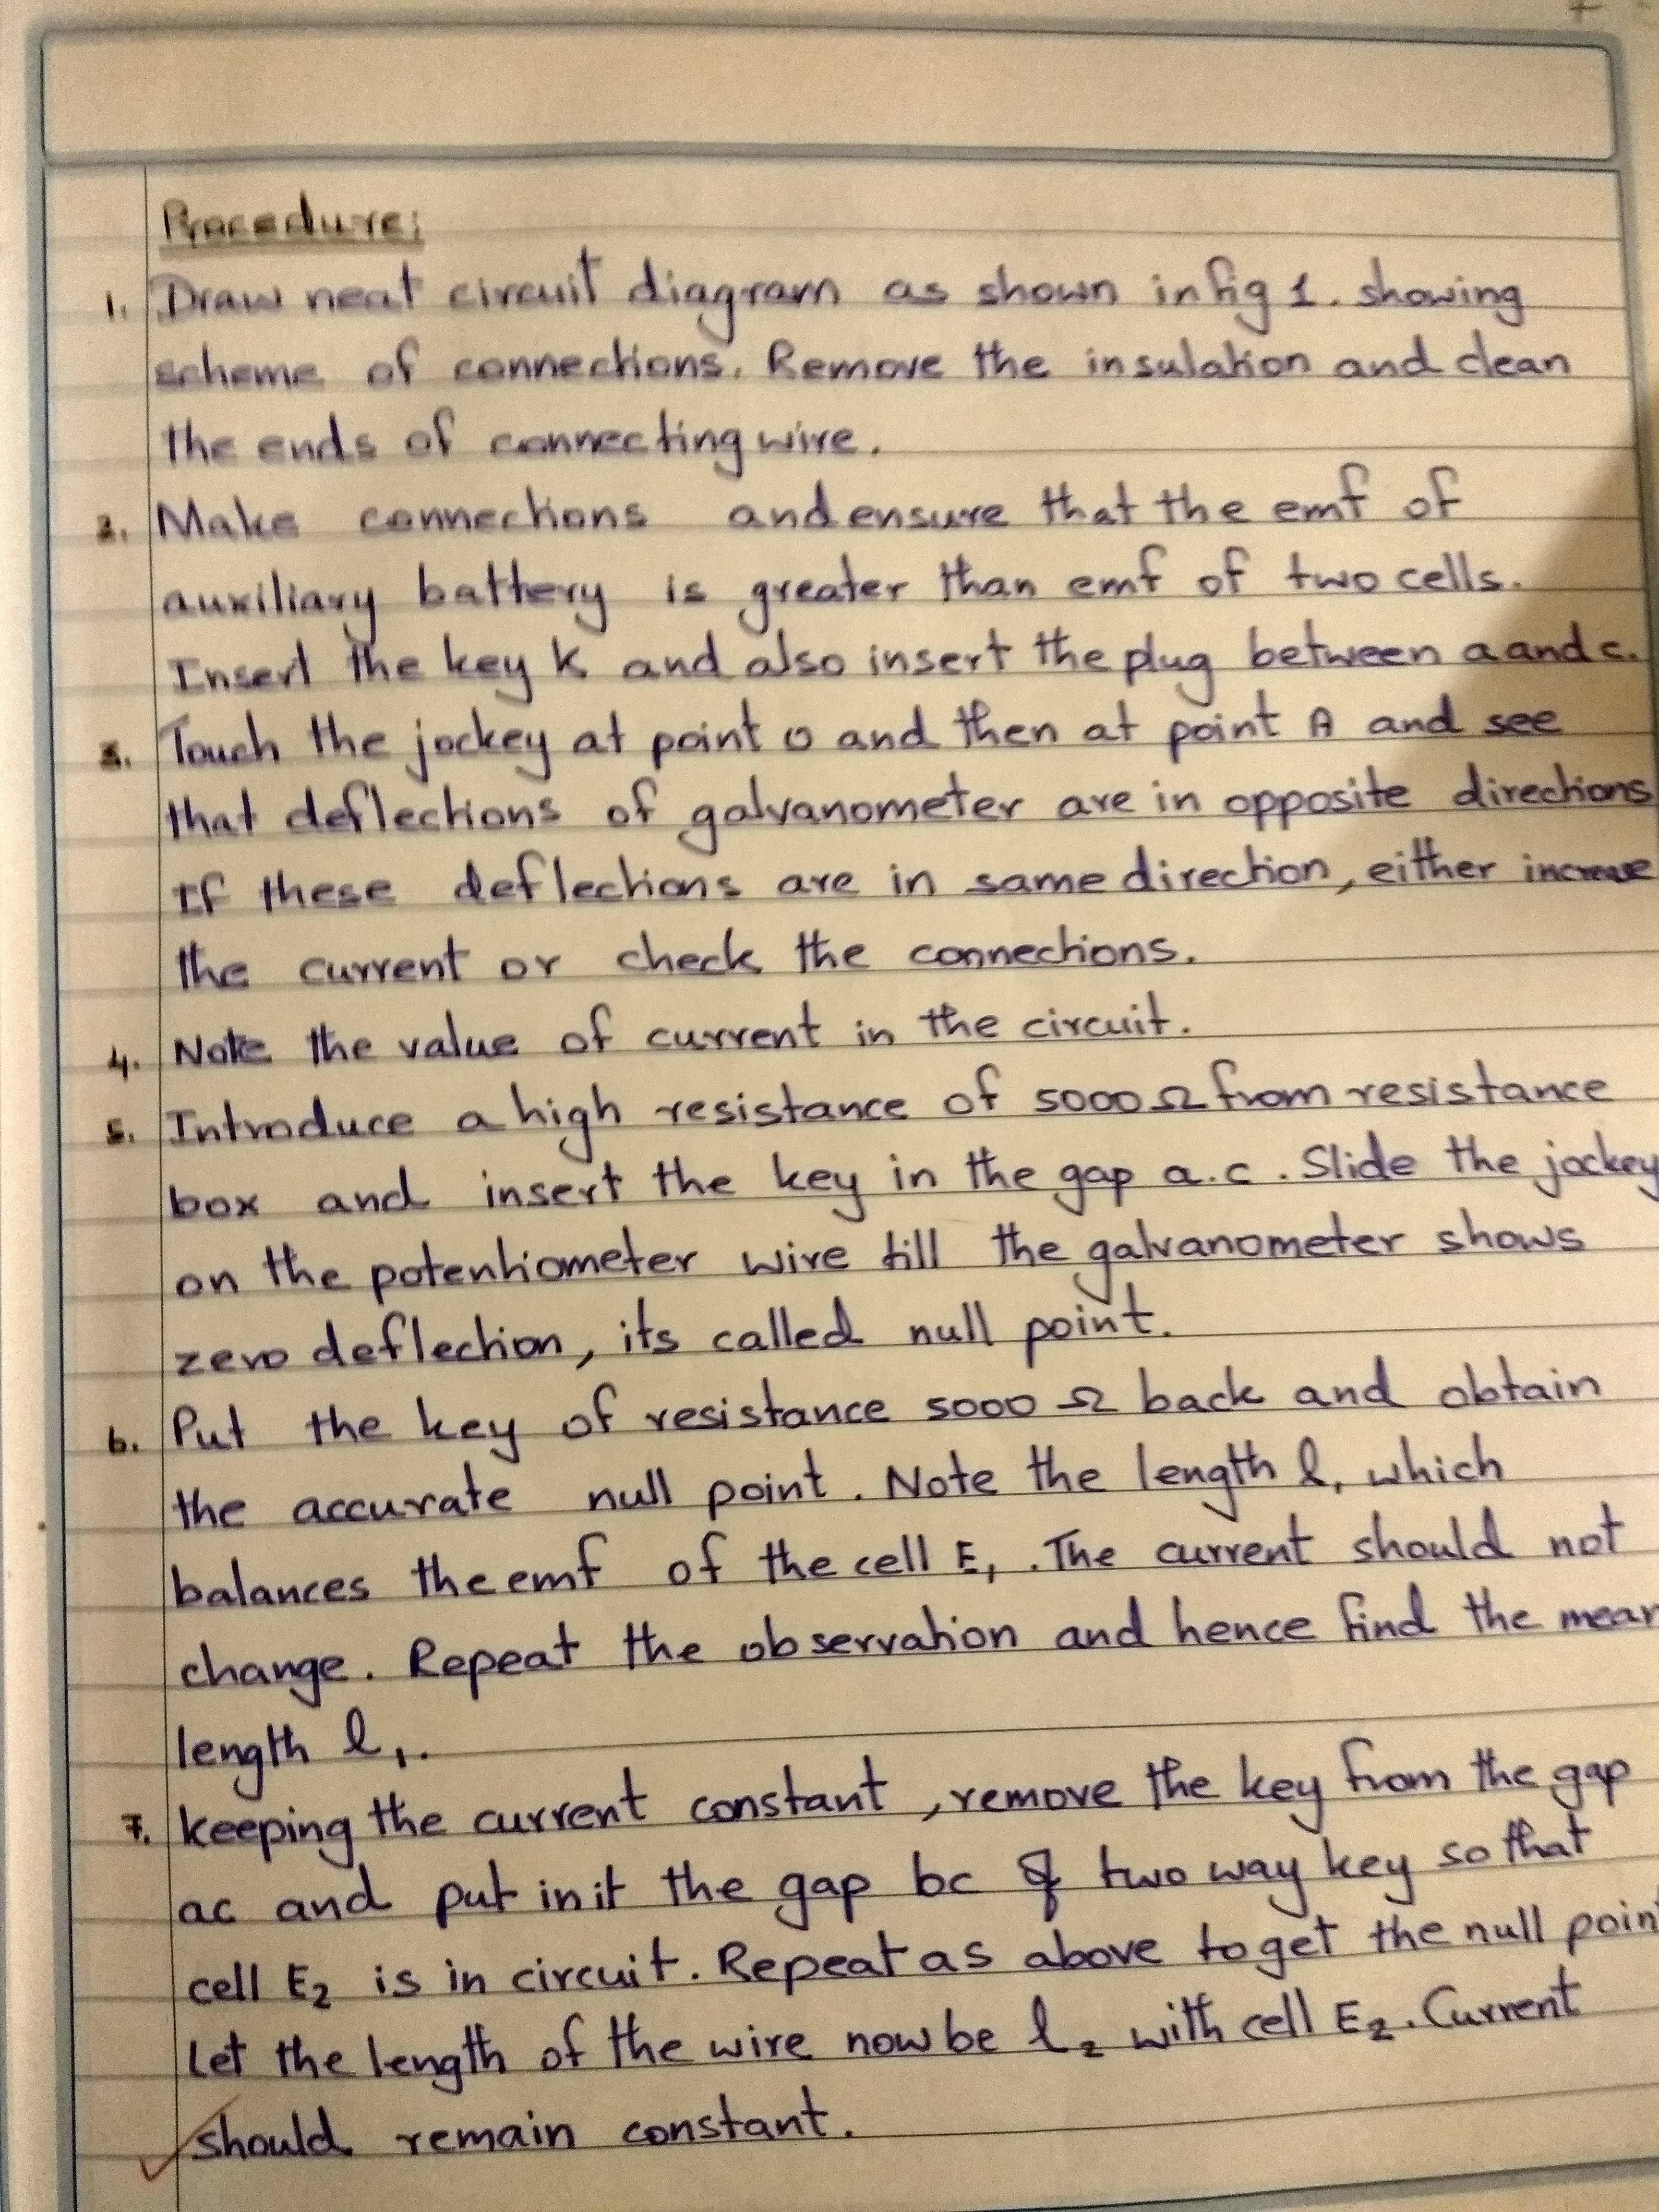 Procedure:
1. Draw neat circuit diagram as shown in fig 1. showing
scheme of connections. Remove the insulation and clean
the ends of connecting wire.
2. Make connections and ensure that the emf of
auxiliary battery is greater than emf of two cells.
Insert the key K and also insert the plug between a and c.
3. Touch the jockey at point O and then at point A and see
that deflections of galvanometer are in opposite directions
If these deflections are in same direction, either increase
the current or check the connections.
4. Note the value of current in the circuit.
5. Introduce a high resistance of 5000 Ω from resistance
box and insert the key in the gap a.c. Slide the jockey
on the potentiometer wire till the galvanometer shows
zero deflection, its called null point.
6. Put the key of resistance 5000 Ω back and obtain
the accurate null point. Note the length l₁ which
balances the emf of the cell E₁. The current should not
change. Repeat the observation and hence find the mean
length l₁.
7. keeping the current constant, remove the key from the gap
ac and put in it the gap bc of two way key so that
cell E₂ is in circuit. Repeat as above to get the null point
Let the length of the wire now be l₂ with cell E₂. Current
should remain constant.